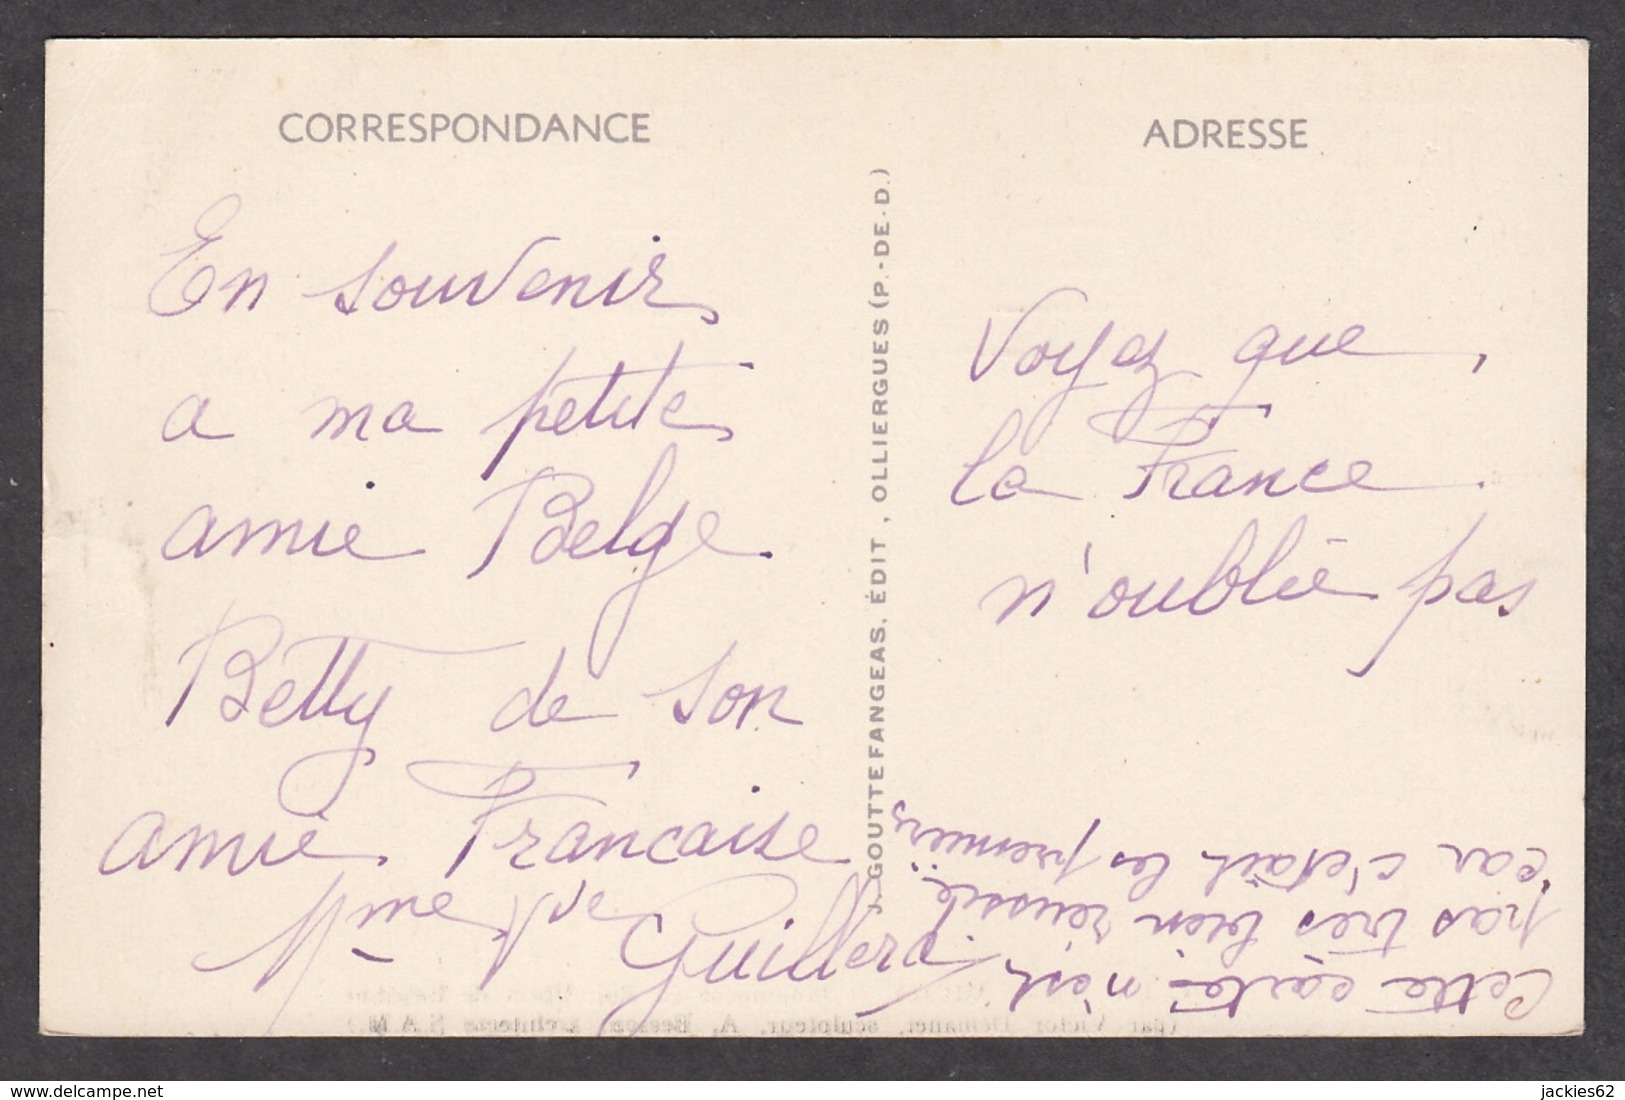 CORRESPONDANCE
En souvenir
a ma petite
amie Belge.
Betty de son
amie Francaise
Mme
Guillera
J. GOUTTEFANGEAS, ÉDIT, OLLIERGUES (P.-DE-D.)
ADRESSE
Voyez que
la France
n'oublie pas
Cette carte n'est
pas très bien réussite
car c'était les premiers
(par Victor Demanet, sculpteur, A. architecte S A M.)
www.delcampe.net
jackies62